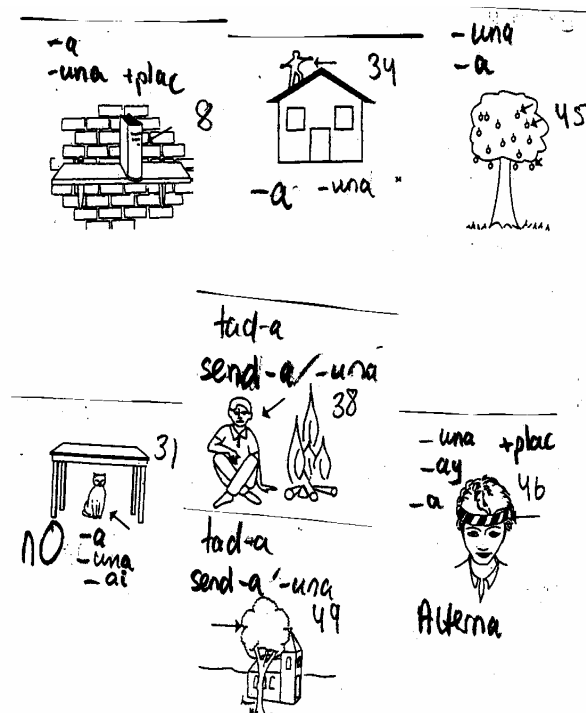 -a
-una +plac
8
34
-a -una
-una
-a
45
tad-a
send-a/-una
38
31
no
-a
-una
-ai
-una +plac
-ay
-a
46
Alterna
tad-a
send-a/-una
49